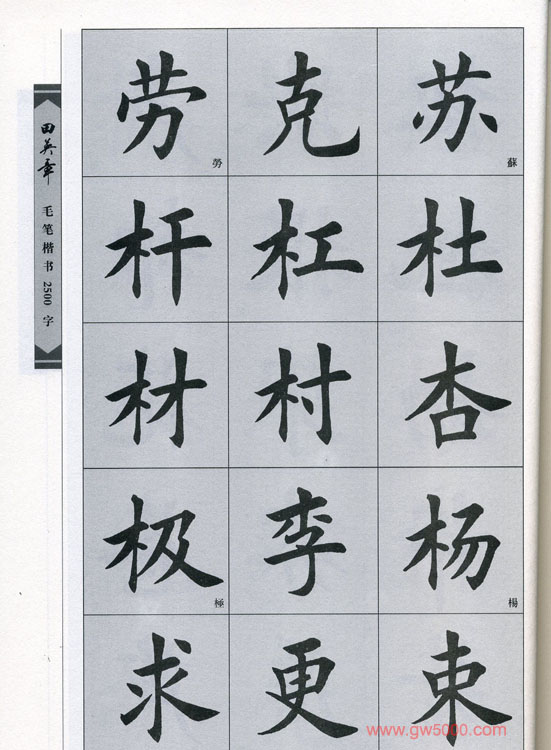 劳 克 苏
勞 蘇
杆 杠 杜
材 村 杏
极 李 杨
極 楊
求 更 束
田英章
毛笔楷书2500字
www.gw5000.com